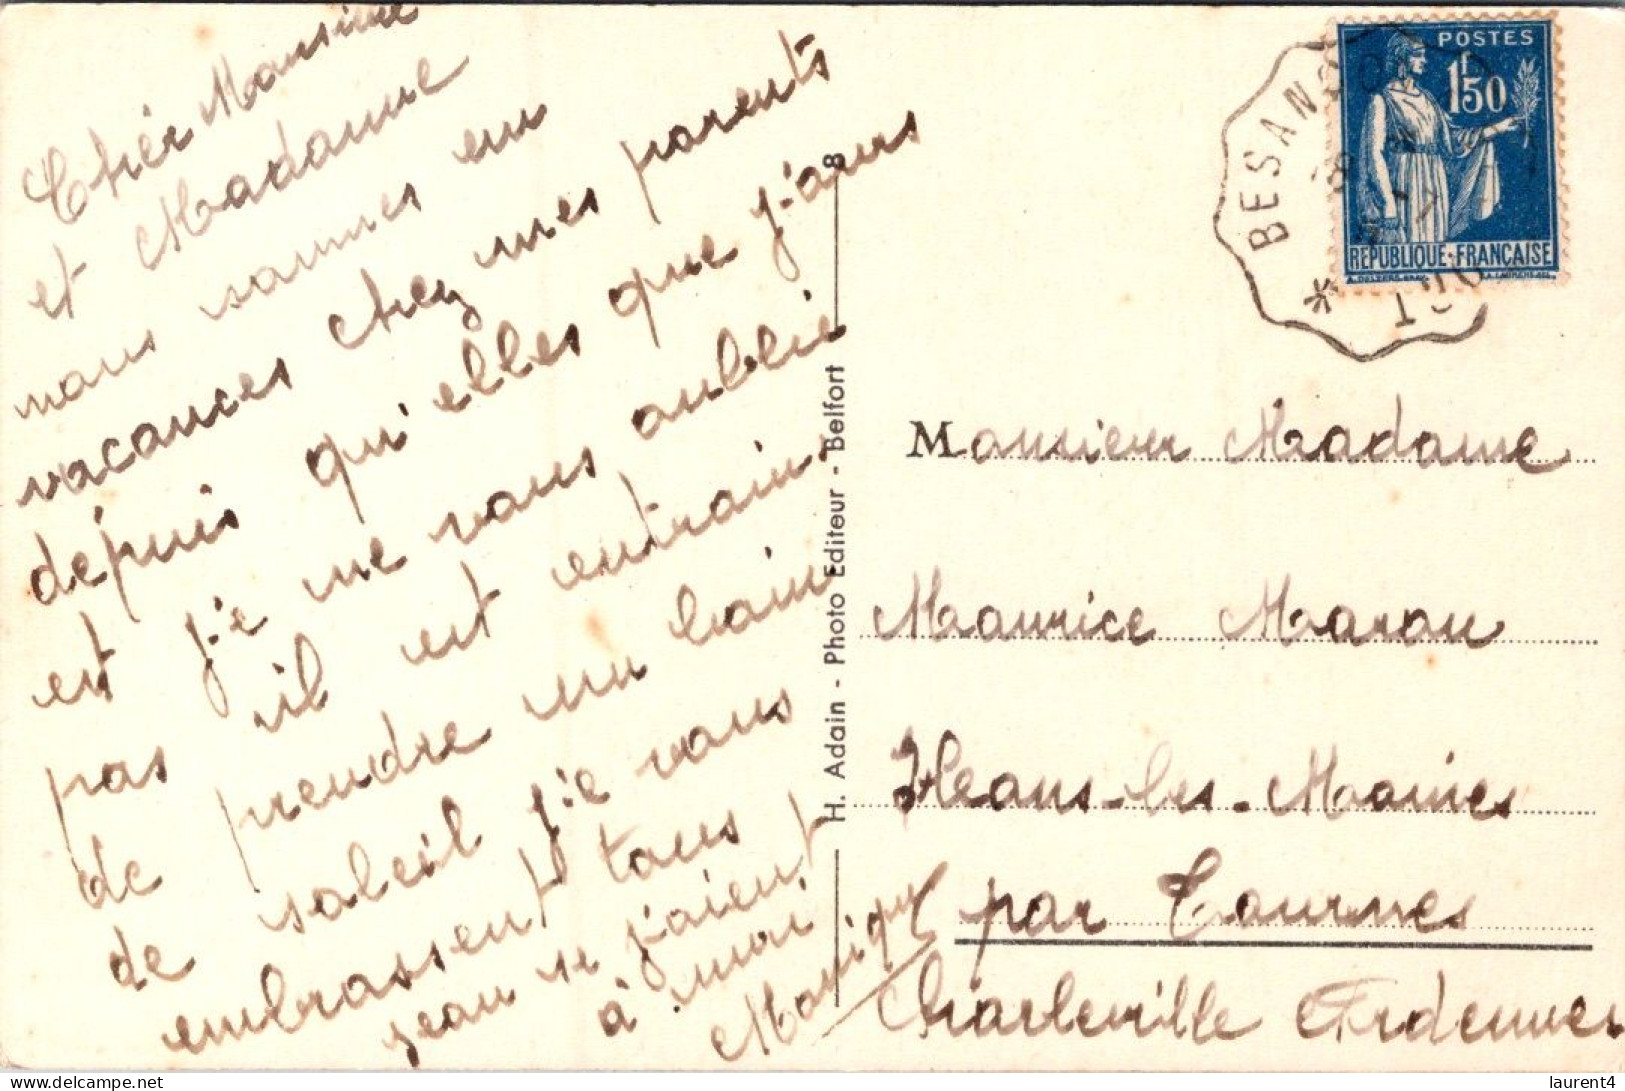 Chér Monsieur
et Madame
nous sommes en
vacances chez mes parents
dépuis qu'elles que j'ours
est j'e ne vous oublie
pas il est entrain
de prendre un bain
de soleil j'e vous
embrassent tous
jean se j'oient
à moi
Monique
H. Adain - Photo Editeur - Belfort
8
BESANÇON
POSTES
1F50
REPUBLIQUE·FRANÇAISE
Monsieur Madame
Maurice Maron
Heans-les-Moines
par Tournes
Charleville Ardennes
laurent4